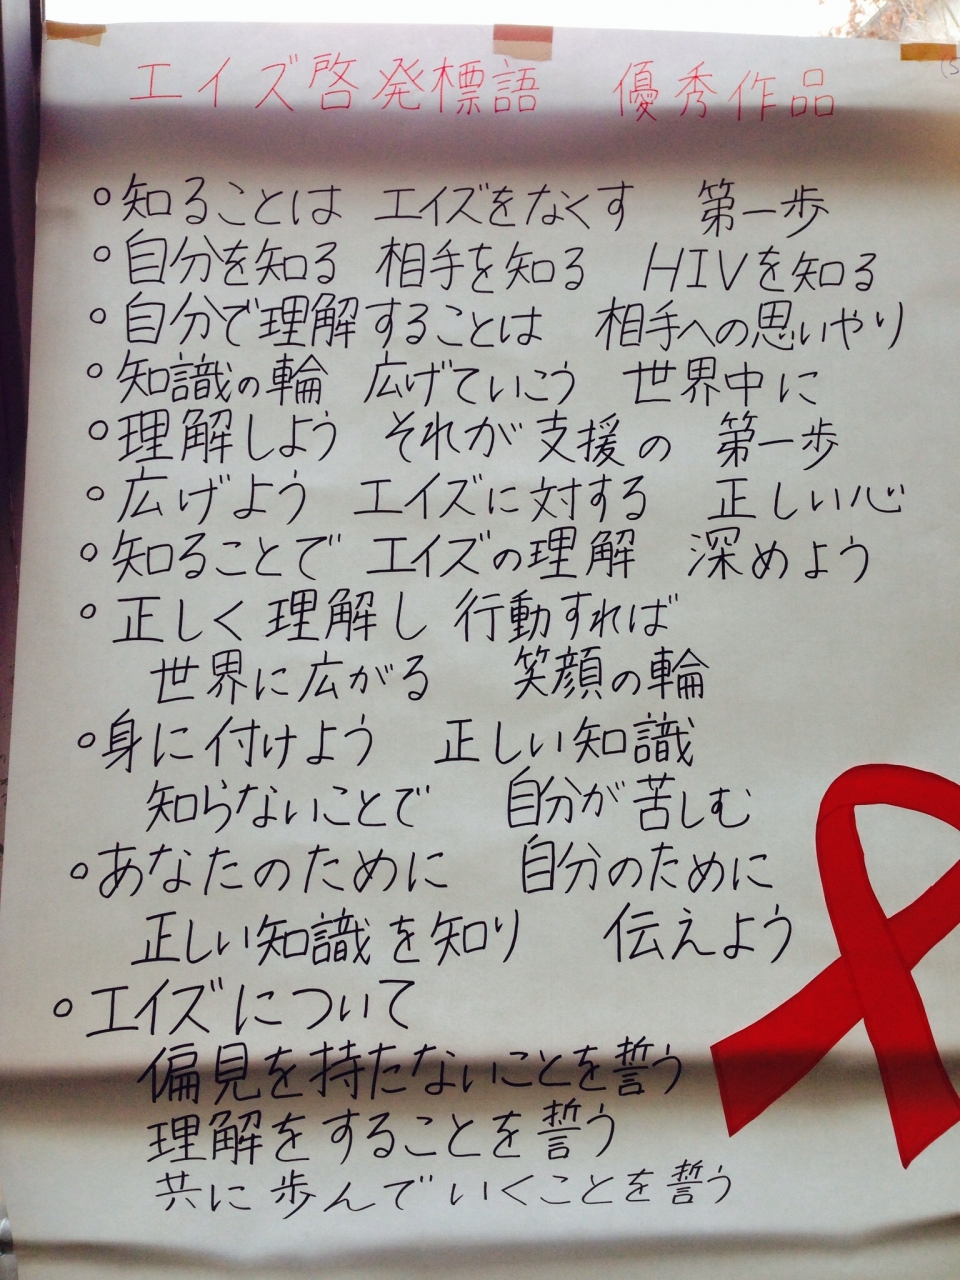 エイズ啓発標語　優秀作品
○知ることは　エイズをなくす　第一歩
○自分を知る　相手を知る　HIVを知る
○自分で理解することは　相手への思いやり
○知識の輪　広げていこう　世界中に
○理解しよう　それが支援の　第一歩
○広げよう　エイズに対する　正しい心
○知ることで　エイズの理解　深めよう
○正しく理解し　行動すれば
世界に広がる　笑顔の輪
○身に付けよう　正しい知識
知らないことで　自分が苦しむ
○あなたのために　自分のために
正しい知識を知り　伝えよう
○エイズについて
偏見を持たないことを誓う
理解をすることを誓う
共に歩んでいくことを誓う